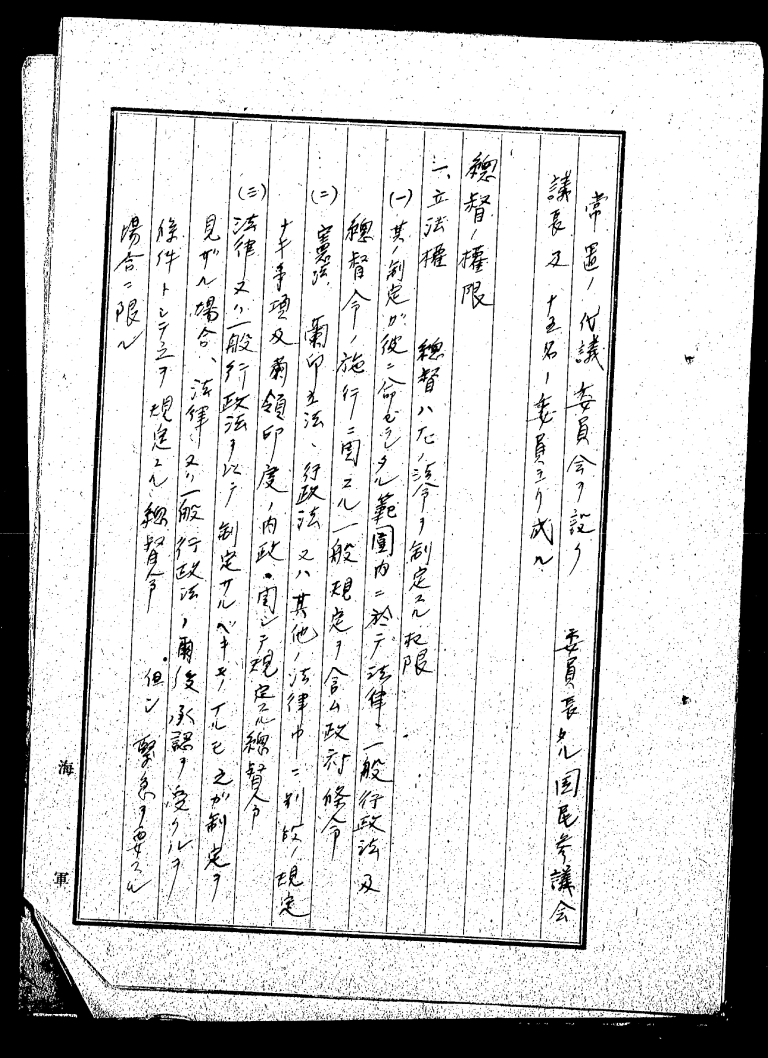 常置ノ代議委員会ヲ設ク　委員長タル国民参議会
議長及十五名ノ委員ヨリ成ル
總督ノ權限
一、立法權　總督ハ左ノ法令ヲ制定スル权限
(一)其ノ制定ガ彼ニ命ゼラレタル範圍内ニ於テ法律、一般行政法及
總督令ノ施行ニ関スル一般規定ヲ含ム政府條令
(二)憲法、蘭印立法、行政法又ハ其他ノ法律中ニ別段ノ規定
ナキ事項及蘭領印度ノ内政ニ関シテ規定スル總督令
(三)法律又ハ一般行政法ヲ以テ制定サルベキモノナルモ之ガ制定ヲ
見ザル場合、法律又ハ一般行政法ノ爾後承認ヲ受クルヲ
條件トシテ之ヲ規定スル總督令　但シ緊急ヲ要スル
場合ニ限ル
海軍